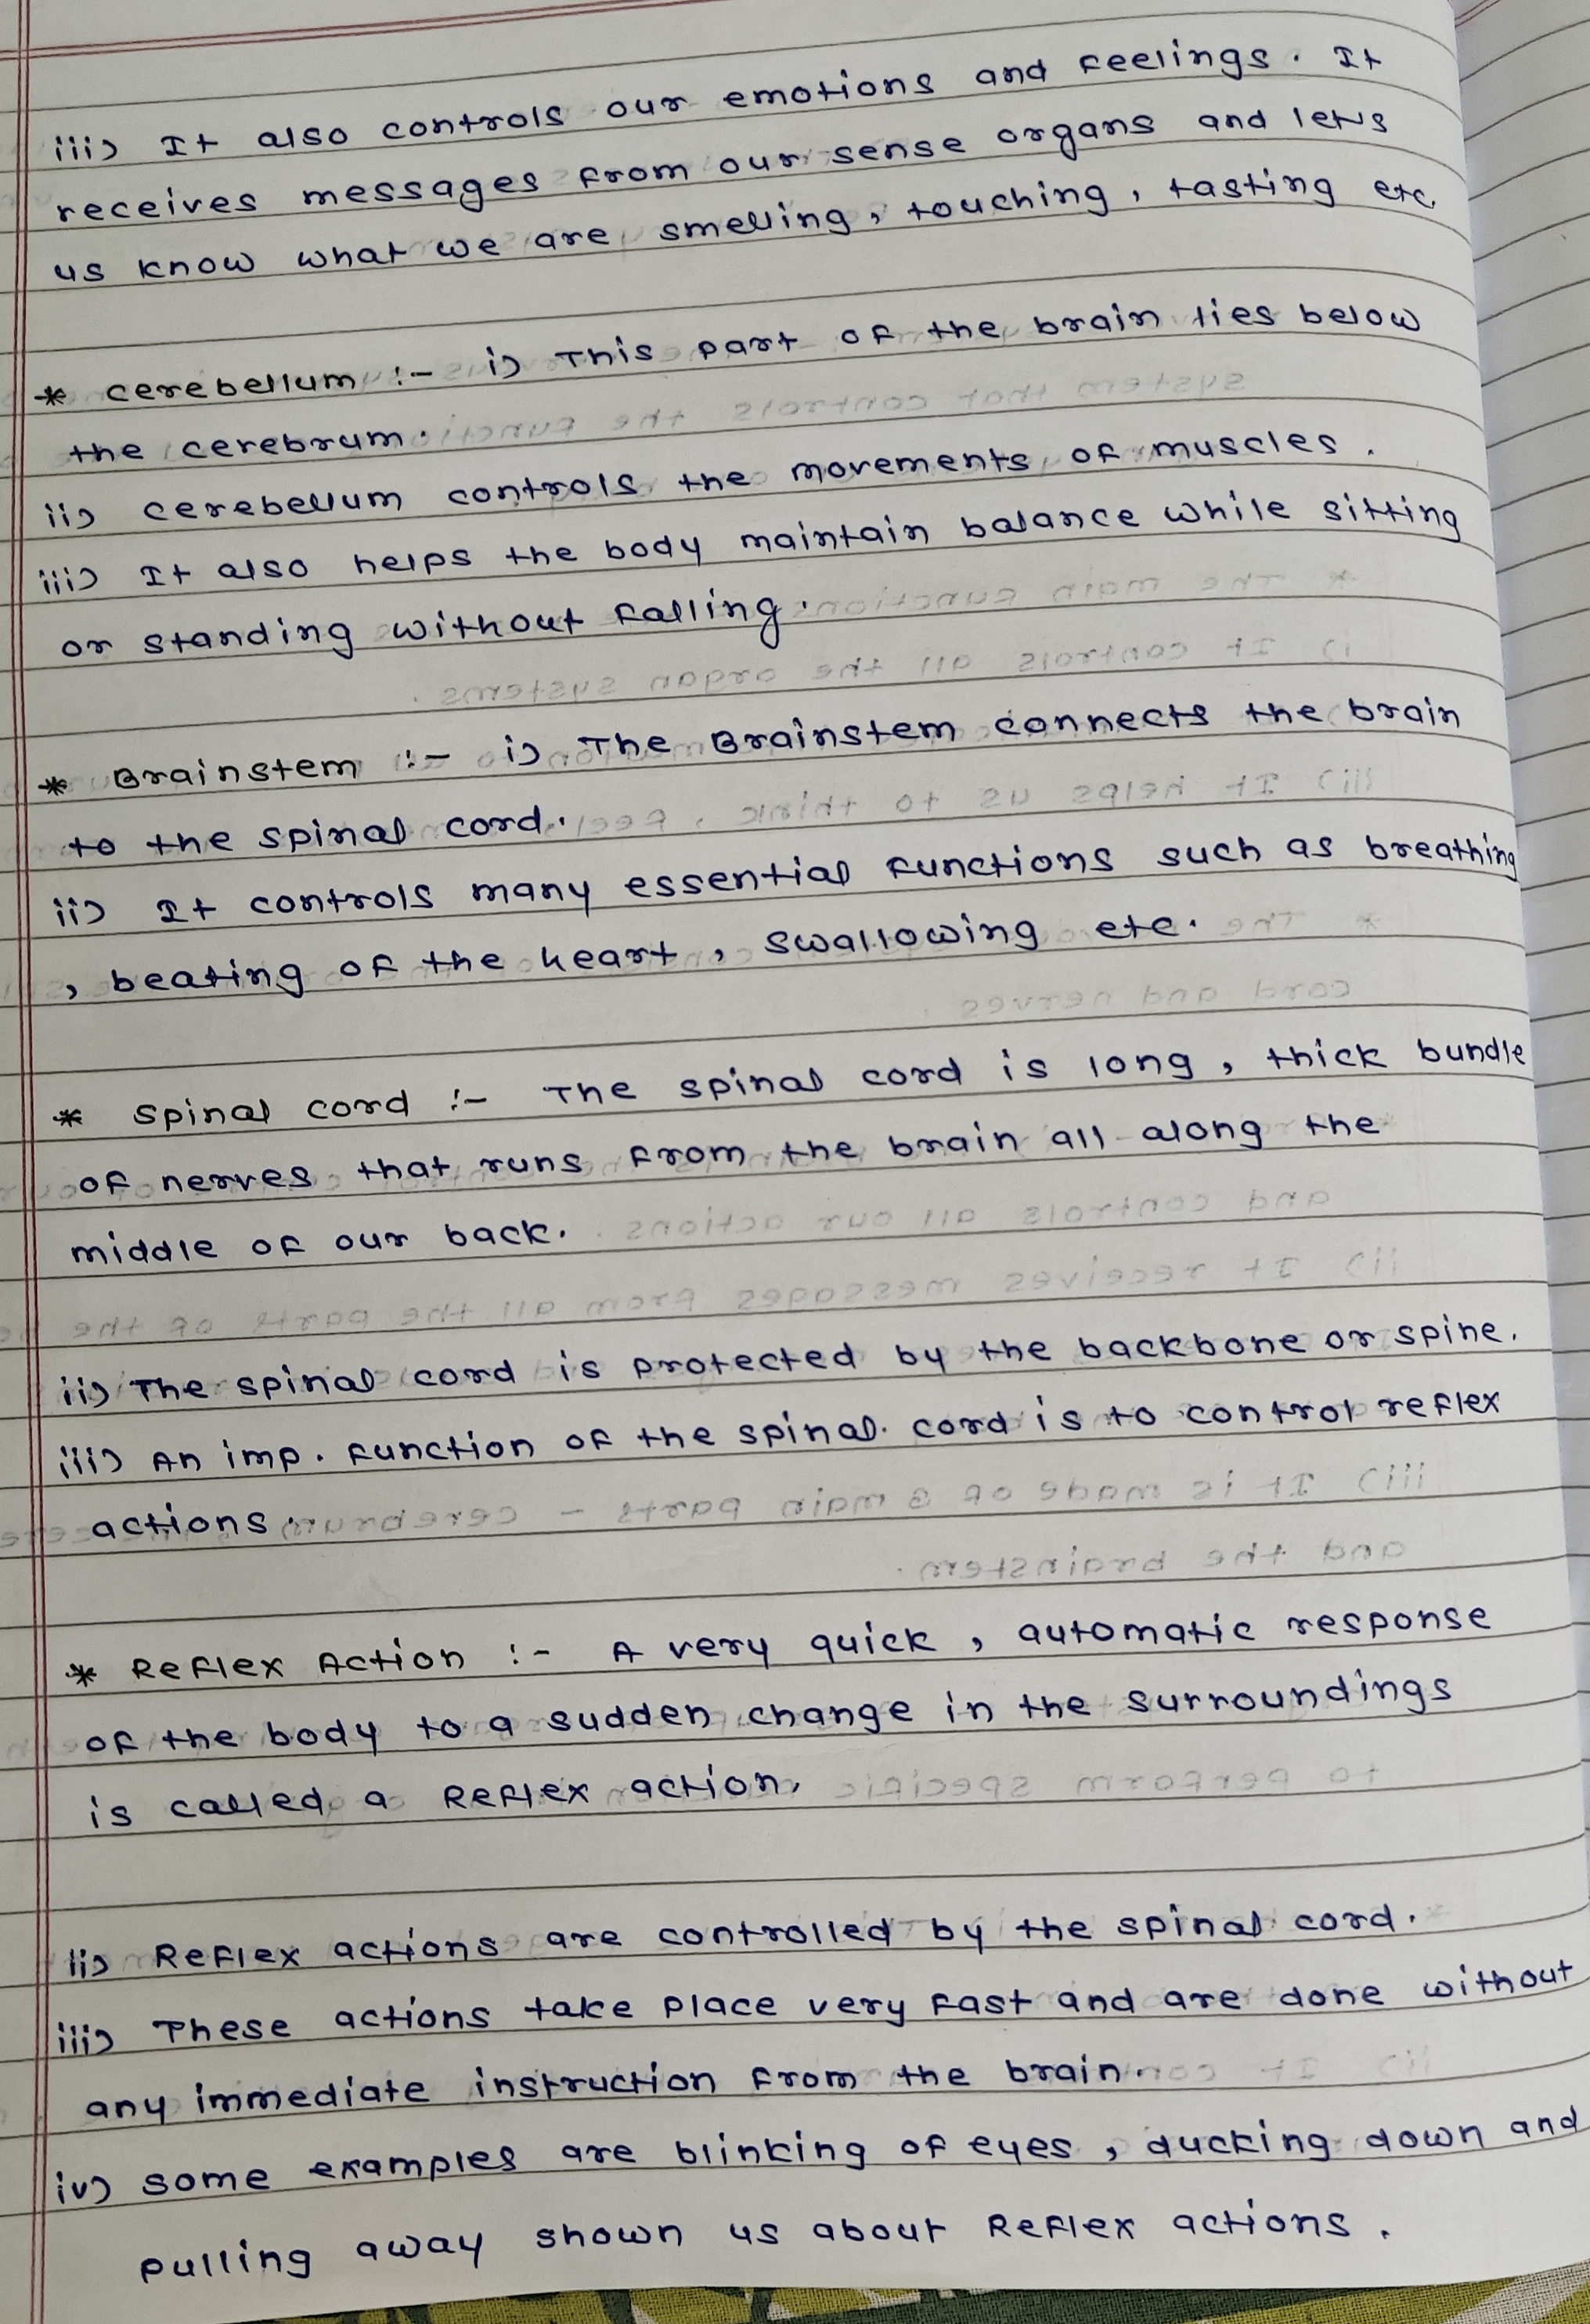 iii) It also controls our emotions and feelings. It
receives messages from our sense organs and lets
us know what we are smelling, touching, tasting etc.
* cerebellum :- i) This part of the brain lies below
the cerebrum.
ii) cerebellum controls the movements of muscles.
iii) It also helps the body maintain balance while sitting
or standing without falling.
* Brainstem :- i) The Brainstem connects the brain
to the spinal cord.
ii) It controls many essential functions such as breathing
, beating of the heart, swallowing etc.
* Spinal cord :- The spinal cord is long, thick bundle
of nerves that runs from the brain all along the
middle of our back.
ii) The spinal cord is protected by the backbone or spine.
iii) An imp. function of the spinal cord is to control reflex
actions.
* Reflex Action :- A very quick, automatic response
of the body to a sudden change in the surroundings
is called a Reflex action.
ii) Reflex actions are controlled by the spinal cord.
iii) These actions take place very fast and are done without
any immediate instruction from the brain.
iv) some examples are blinking of eyes, ducking down and
pulling away shown us about Reflex actions.